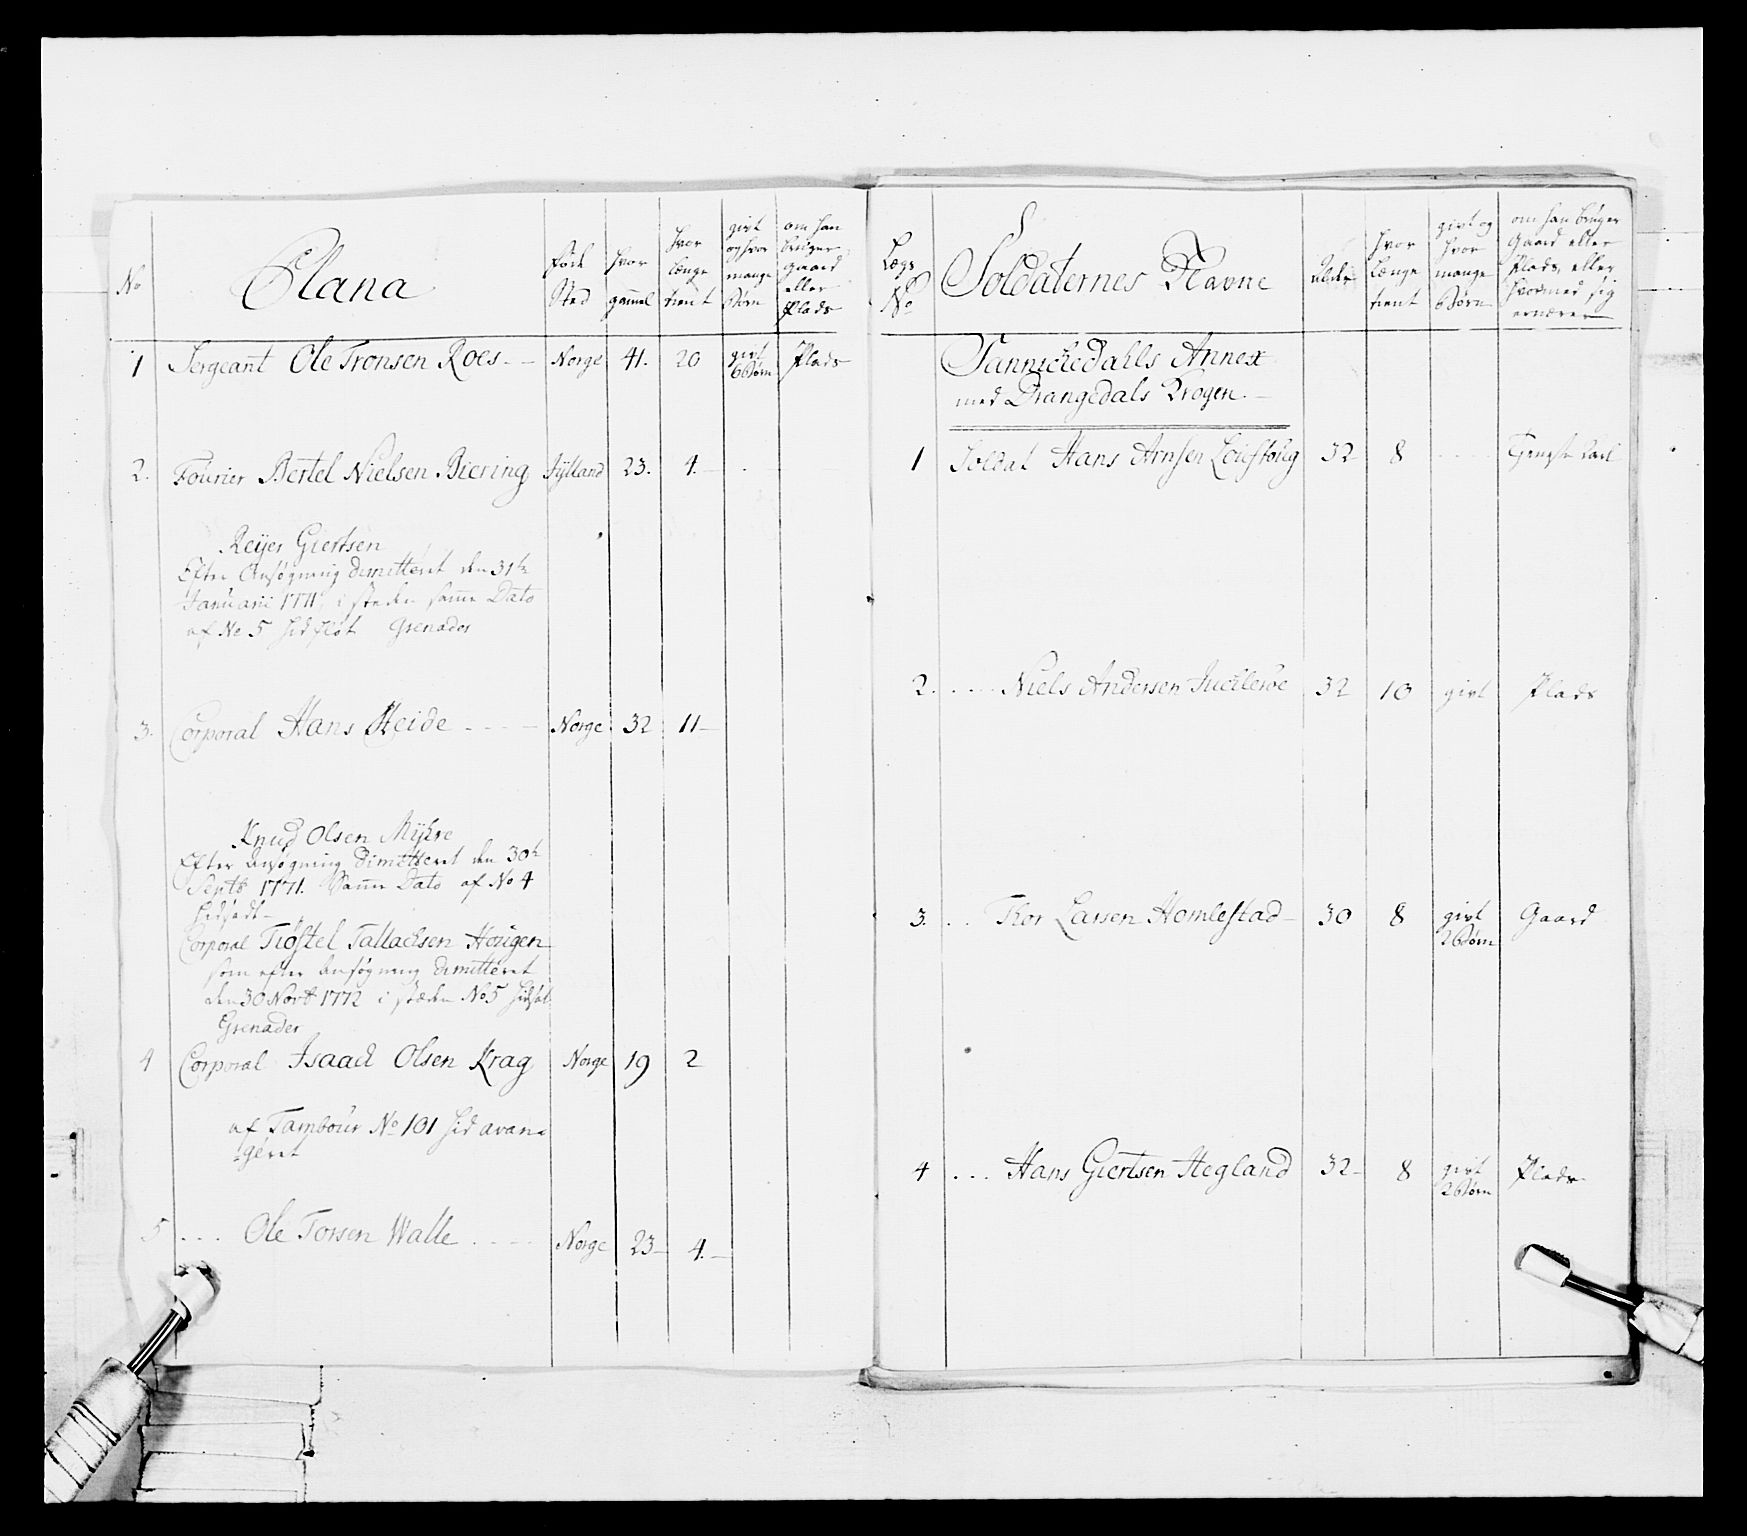 No
Etana
Føde Sted
hvor gammel
hvor længe tient
givt og hvor mange Børn
om han bruger gaard eller Plads
1 Sergeant Ole Tronsen Roes Norge 41. 20 givt 6 Børn Plads
2. Fourier Bertel Nielsen Biering Jylland 23. 4.
Reijer Giertsen
Efter Ansøgning dimitteret den 31te
Januarii 1771, i steden samme Dato
af No 5 hidfløt Grenader
3. Corporal Hans Heide Norge 32 11
Knud Olsen Mijhre
Efter Ansøgning dimitteret den 30te
Septb 1771. Samme Dato af No 4
hidsadt
Corporal Tiøstel Tallachsen Hougen
som efter Ansøgning dimitteret
den 30 Novb 1772 i stæden No 5 hidsat
Grenader
4 Corporal Isaach Olsen Krag Norge 19 2
af Tambour No 101 hid avan-
geret
5 . . . Ole Torsen Walle Norge 23 4.
Lægs No
Soldaternes Navne
Alder
hvor Længe tient
givt og hvor mange Børn
om han bruger Gaard eller Plads, eller hvormed sig ernærer
Sannichedahls Annex
med Drangedals Krogen.
1 Soldat Hans Arnsen Loustoug 32 8 Tieneste Karl
2. . . . Niels Andersen 32 10 givt Plads
3. . . Thor Larsen Homlestad 30 8 givt 2 Børn Gaard
4 . . . Hans Giertsen Hegland 32 8 givt 2 Børn Plads